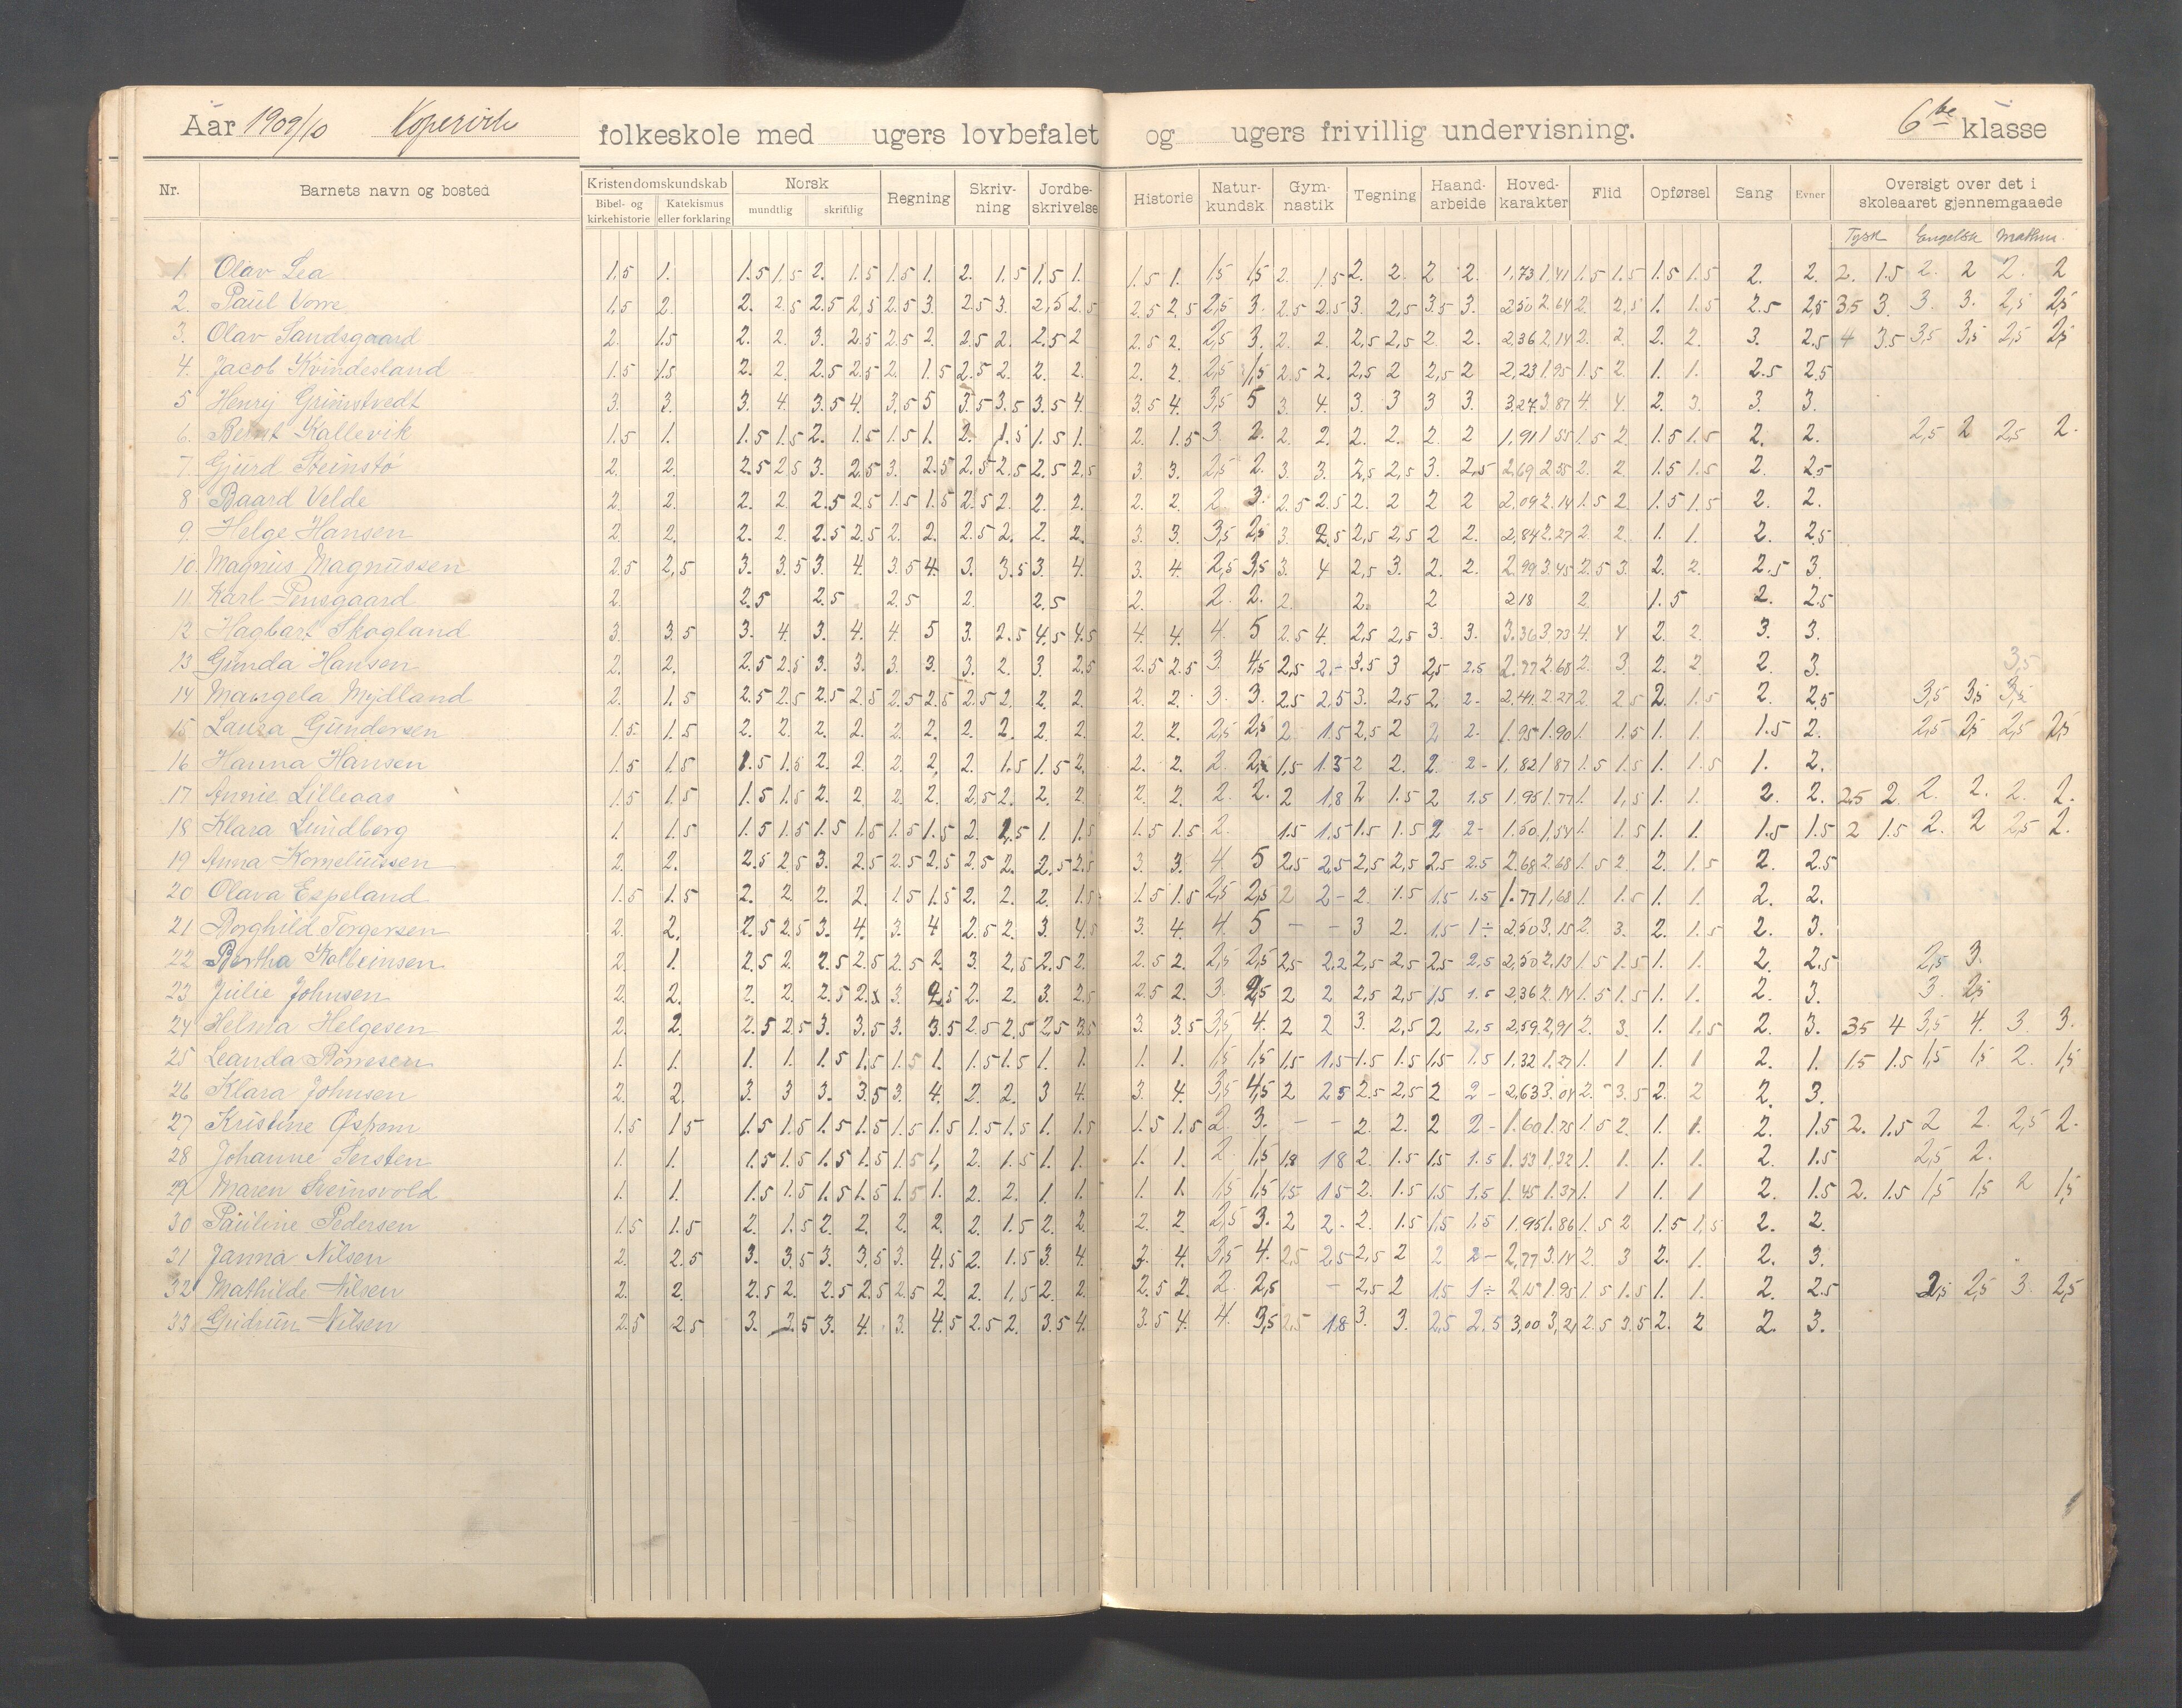 Aar 1909/10 Kopervik folkeskole med ugers lovbefalet og ugers frivillig undervisning. 6te klasse
Nr. Barnets navn og bosted Kristendomskundskab Norsk Regning Skriv-ning Jordbe-skrivelse Historie Natur-kundsk Gym-nastik Tegning Haand-arbeide Hoved-karakter Flid Opførsel Sang Evner Oversigt over det i skoleaaret gjennemgaaede
Bibel- og kirkehistorie Katekismus eller forklaring mundtlig skriftlig
Tysk Engelsk Mathm.
1. Olav Lea 1.5 1. 1.5 1.5 2. 1.5 1.5 1. 2. 1.5 1.5 1. 1.5 1. 1,5 1,5 2. 1.5 2. 2. 2 2. 1,73 1,41 1.5 1.5 1.5 1.5 2. 2. 2. 1.5 2. 2 2. 2
2. Paul Vorre 1.5 2. 2. 2.5 2.5 2.5 2.5 3. 2.5 3. 2,5 2.5 2.5 2.5 2,5 3. 2.5 2.5 3. 2,5 3.5 3. 2.50 2.64 2. 2,5 1. 1.5 2.5 2,5 3.5 3. 3. 3. 2,5 2,5
3. Olav Sandsgaard 2. 1.5 2. 2. 3. 2.5 2.5 2. 2.5 2. 2.5 2 2.5 2. 2,5 3. 2. 2. 2,5 2,5 2. 2. 2,36 2,14 2. 2. 2. 2. 3. 2.5 4 3.5 3,5 3,5 2,5 2,5
4. Jacob Kvindesland 1.5 1.5 2. 2. 2.5 2.5 2. 1.5 2.5 2. 2. 2. 2. 2. 2,5 1,5 2.5 2. 2,5 2 2,5 2 2,23 1.95 1.5 2. 1. 1. 2.5 2.5
5 Henry Grimstvedt 3. 3. 3. 4. 3.5 4. 3.5 5 3.5 3.5 3.5 4. 3.5 4. 3,5 5 3. 4. 3. 3 3 3. 3,27 3,87 4. 4. 2. 3. 3. 3.
6. Bernt Kallevik 1.5 1. 1.5 1.5 2. 1.5 1.5 1. 2. 1.5 1.5 1. 2. 1.5 3. 2. 2. 2. 2. 2. 2. 2 1,91 1.55 1.5 2. 1.5 1.5 2. 2. 2,5 2 2,5 2.
7. Gjurd Steinstø 2. 2. 2.5 2.5 3. 2.5 3. 2.5 2.5 2.5 2.5 2.5 3. 3. 2,5 2. 3. 3. 2,5 2,5 3. 2,5 2,69 2.55 2. 2. 1.5 1.5 2. 2.5
8. Baard Velde 2. 2. 2. 2. 2.5 2.5 1.5 1.5 2.5 2. 2. 2. 2. 2. 2 3. 2.5 2.5 2. 2 2 2 2,09 2.14 1.5 2. 1.5 1.5 2. 2.
9. Helge Hansen 2. 2. 2. 2. 2.5 2.5 2. 2. 2.5 2. 2. 2. 3. 3. 3,5 2,5 3. 2.5 2,5 2,5 2 2. 2,84 2.27 2. 2. 1. 1. 2. 2.5
10. Magnus Magnussen 2.5 2,5 3. 3.5 3. 4. 3.5 4. 3. 3.5 3. 4. 3. 4. 2,5 3,5 3. 4 2,5 3. 2. 2. 2,99 3.45 2.5 3. 2. 2. 2.5 3.
11. Karl Pensgaard 2. 2.5 2.5 2.5 2. 2.5 2. 2. 2. 2. 2. 2 2.18 2. 1.5 2. 2.5
12 Hagbart Skogland 3. 3.5 3. 4. 3. 4. 4. 5 3. 2.5 4.5 4.5 4. 4. 4. 5 2.5 4. 2,5 2,5 3. 3. 3,36 3,73 4. 4 2. 2. 3. 3.
13 Gunda Hansen 2. 2. 2.5 2.5 3. 3. 3. 3. 3. 2. 3. 2.5 2.5 2.5 3. 4,5 2,5 2- 3.5 3 2,5 2,5 2,77 2.68 2. 3. 2. 2 2. 3. 3,5
14 Mangela Mydland 2. 1.5 2.5 2.5 2.5 2.5 2.5 2.5 2.5 2. 2. 2. 2. 2. 3. 3. 2.5 2,5 3. 2,5 2. 2- 2,41 2.27 2. 2.5 2. 1.5 2. 2,5 3,5 3,5 3,5
15 Laura Gundersen 1.5 1.5 2. 2. 2. 2. 2. 2. 2. 2. 2. 2. 2. 2. 2,5 2,5 2 1.5 2.5 2 2 2- 1.95 1.90 1. 1.5 1. 1. 1.5 2. 2,5 2,5 2,5 2,5
16 Hanna Hansen 1.5 1.5 1.5 1.5 2. 2. 2. 2. 2. 1.5 1.5 2. 2. 2. 2. 1,5 1.3 2 2. 2 2- 1,82 1,87 1.5 1.5 1. 1.5 1. 2.
17 Annie Lilleaas 1.5 1.5 1.5 1.5 2. 2. 2. 2. 2.5 2. 2. 2. 2. 2. 2. 2. 2 1.8 2 1.5 2 1.5 1.95 1.77 1. 1,5 1. 1. 2. 2. 2.5 2. 2. 2. 2. 2.
18 Klara Lundberg 1. 1.5 1.5 1.5 1.5 1.5 1.5 1.5 2. 1.5 1. 1.5 1.5 1.5 2. 1.5 1.5 1.5 1.5 2 2- 1.50 1,54 1. 1.5 1. 1. 1.5 1.5 2 1.5 2. 2 2,5 2.
19 Anna Korneliussen 2. 2. 2.5 2.5 3. 2.5 2.5 2.5 2.5 2. 2.5 2.5 3. 3. 4. 5 2,5 2,5 2,5 2,5 2,5 2.5 2,68 2,68 1.5 2. 2. 1.5 2. 2.5
20 Olava Espeland 1.5 1.5 2. 2. 2. 2. 1.5 1.5 2. 2. 2. 1.5 1.5 1.5 2,5 2,5 2 2- 2. 1.5 1.5 1.5 1.77 1,68 1. 1.5 1. 1. 2. 2.
21 Borghild Torgersen 2. 2. 2.5 2.5 3. 4. 3. 4 2.5 2. 3. 4.5 3. 4. 4. 5 - - 3 2. 1.5 1÷ 2.50 3.15 2. 3. 2. 1.5 2. 3.
22 Bertha Kolbeinsen 2. 1. 2.5 2. 2.5 2.5 2.5 2. 3. 2,5 2.5 2. 2.5 2. 2,5 2,5 2,5 2,2 2,5 2,5 2,5 2,5 2,50 2,13 1.5 1.5 1. 1. 2. 2.5 2,5 3.
23 Julie Johnsen 2. 2. 2. 2. 2.5 3. 2,5 2. 2. 3. 2.5 2.5 2. 3. 2,5 2 2 2,5 2,5 1.5 1.5 2,36 2.14 1.5 1.5 1. 1. 2. 3. 3. 2,5
24 Helma Helgesen 2. 2. 2.5 2.5 3. 3.5 3. 3.5 2.5 2.5 2,5 3.5 3. 3.5 3,5 4. 2 2 3. 2,5 2 2,5 2,59 2,91 2. 3. 1. 1.5 2. 3. 3.5 4 3,5 4. 3. 3.
25 Leanda Børresen 1. 1. 1. 1. 1.5 1.5 1.5 1. 1.5 1.5 1. 1. 1. 1. 1,5 1,5 1,5 1,5 1.5 1.5 1.5 1.5 1,32 1.27 1. 1 1. 1 2. 1. 1.5 1.5 1,5 1,5 2. 1,5
26 Klara Johnsen 2. 2. 3. 3 3. 3.5 3. 4. 2. 2. 3 4. 3. 4. 3,5 4,5 2 2.5 2.5 2,5 2 2- 2,63 3.04 2. 3.5 2. 2 2. 3.
27 Kristine Østrem 1.5 1.5 1.5 1.5 1.5 1.5 1.5 1.5 1.5 1.5 1. 1.5 1.5 1.5 2. 3. - - 2. 2. 2 2- 1.60 1.75 1.5 2. 1. 1. 2. 1.5 2. 1.5 2 2. 2,5 2.
28 Johanne Sersten 1. 1. 1.5 1.5 1.5 1.5 1.5 1. 2. 1.5 1. 1. 1. 1. 2. 1,5 1.8 1.8 2. 1.5 1.5 1.5 1.53 1,32 1. 1. 1. 1. 2. 1.5 2,5 2.
29 Maren Steinsvold 1. 1. 1.5 1.5 1.5 1.5 1.5 1. 2. 2. 1. 1. 1. 1. 1,5 1,5 1.5 1.5 2. 1.5 1.5 1.5 1.45 1.37 1. 1 1. 1 2. 1.5 2. 1.5 1,5 1,5 2 1,5
30 Pauline Pedersen 1.5 1.5 2. 1.5 2. 2. 2. 2. 2. 1.5 2. 2. 2. 2. 2,5 3. 2 2- 2. 1.5 1.5 1.5 1.95 1.86 1.5 2. 1.5 1,5 2. 2.
31 Janna Nilsen 2. 2.5 3. 3.5 3. 3,5 3. 4,5 2. 1.5 3. 4. 3. 4. 3,5 4. 2,5 2,5 2,5 2 2 2- 2,77 3.14 2. 3 2. 1. 2. 3.
32 Mathilde Nilsen 2. 2. 2.5 2. 2.5 2.5 2.5 2. 2. 1.5 2. 2. 2.5 2. 2. 2,5 - 2,5 2 1.5 1÷ 2,15 1.95 1.5 1.5 1. 1. 2. 2.5 2,5 2,5 3. 2,5
33 Gudrun Nilsen 2.5 2.5 3. 3.5 3. 4. 3. 4.5 2.5 2. 3.5 4. 3.5 4. 4. 3,5 2.5 1,8 3. 3. 2,5 2.5 3,00 3,21 2.5 3.5 2. 2 2. 3.